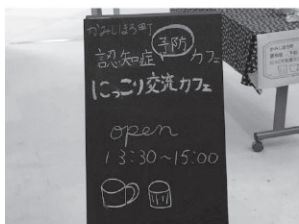 かみしほろ町
認知症予防カフェ
にっこり交流カフェ
open
13:30~15:00